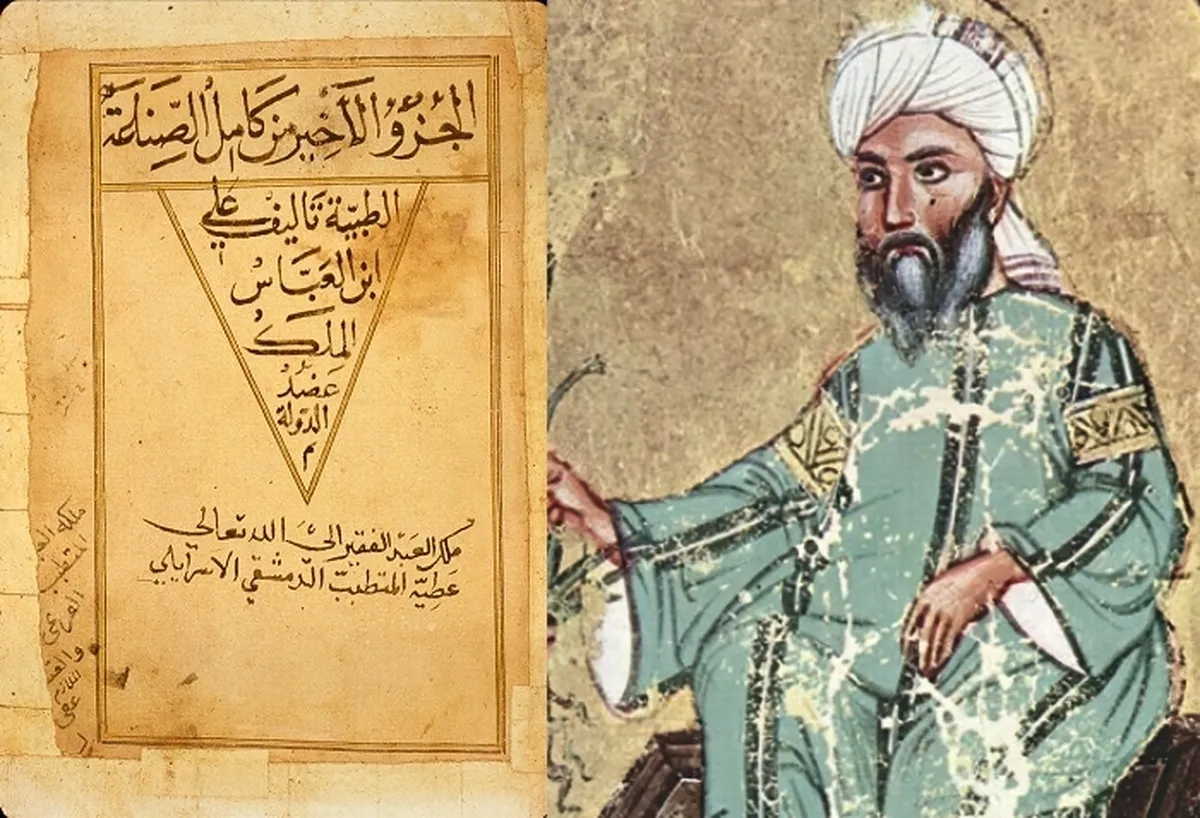 الجُزؤُ الاَخير مِن كَامِل الصِّنَاعَة
الطبيّة تَاليف عَلي
ابن العَبَّاسْ
المَلِكْ
عَضُدُ
الدَولة
م
ملك العَبْد الفقير الىَ الله تعالى
عَطِيّة المتطبب الدمشقي الاسرايلي